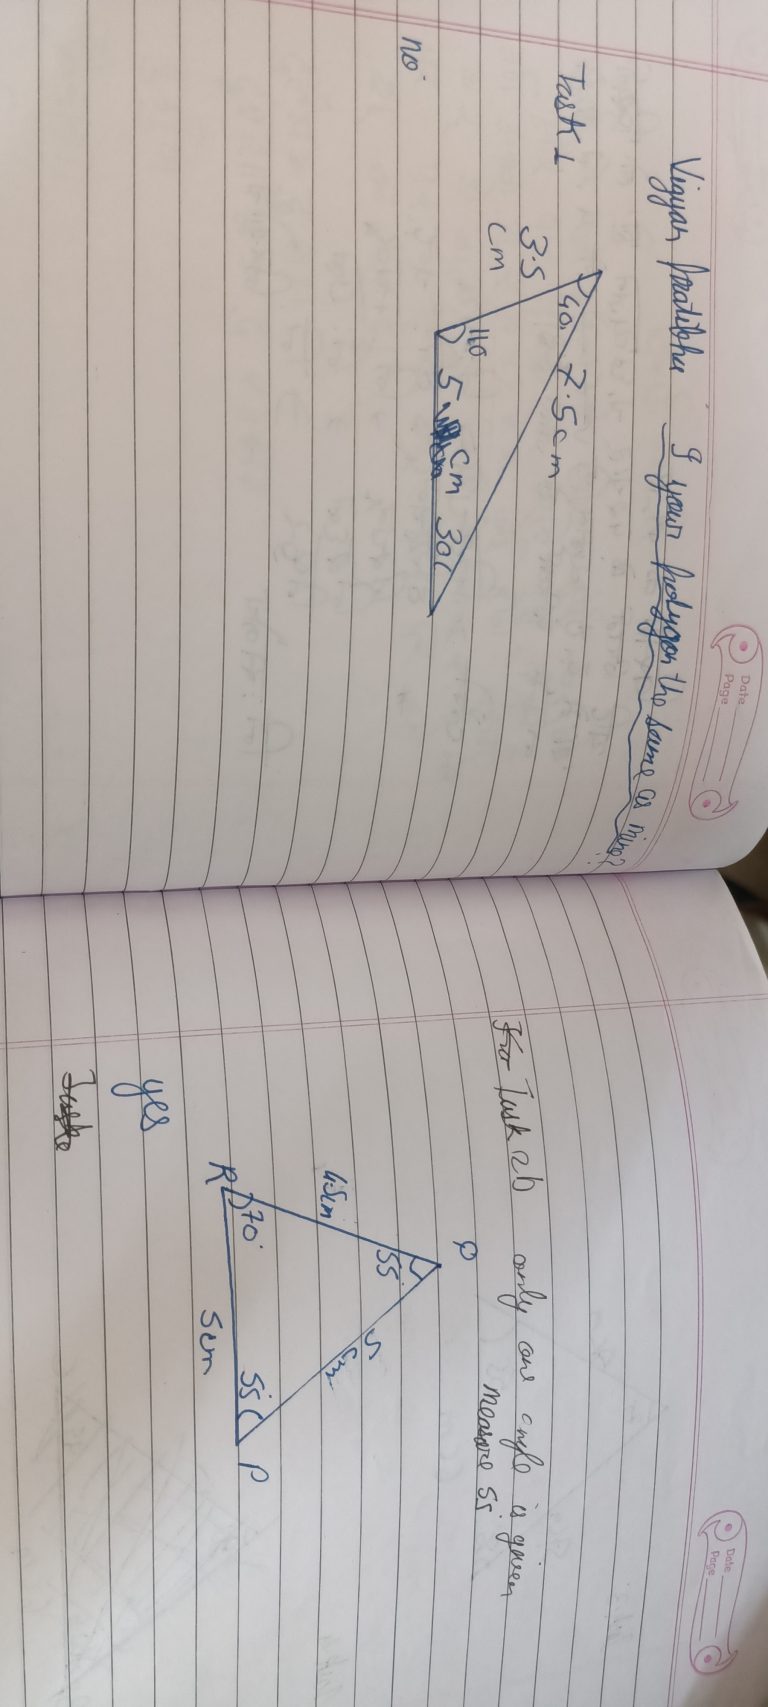 Date
Page
Vigyan pratibha I your polygon the same as mine?
Task 1
40° 7.5cm
3.5
cm
110
5 cm 30
no
Date
Page
Task 2b only one angle is given
measure 55
Q
55
4.5cm
5
cm
70° 55°
R P
5cm
yes